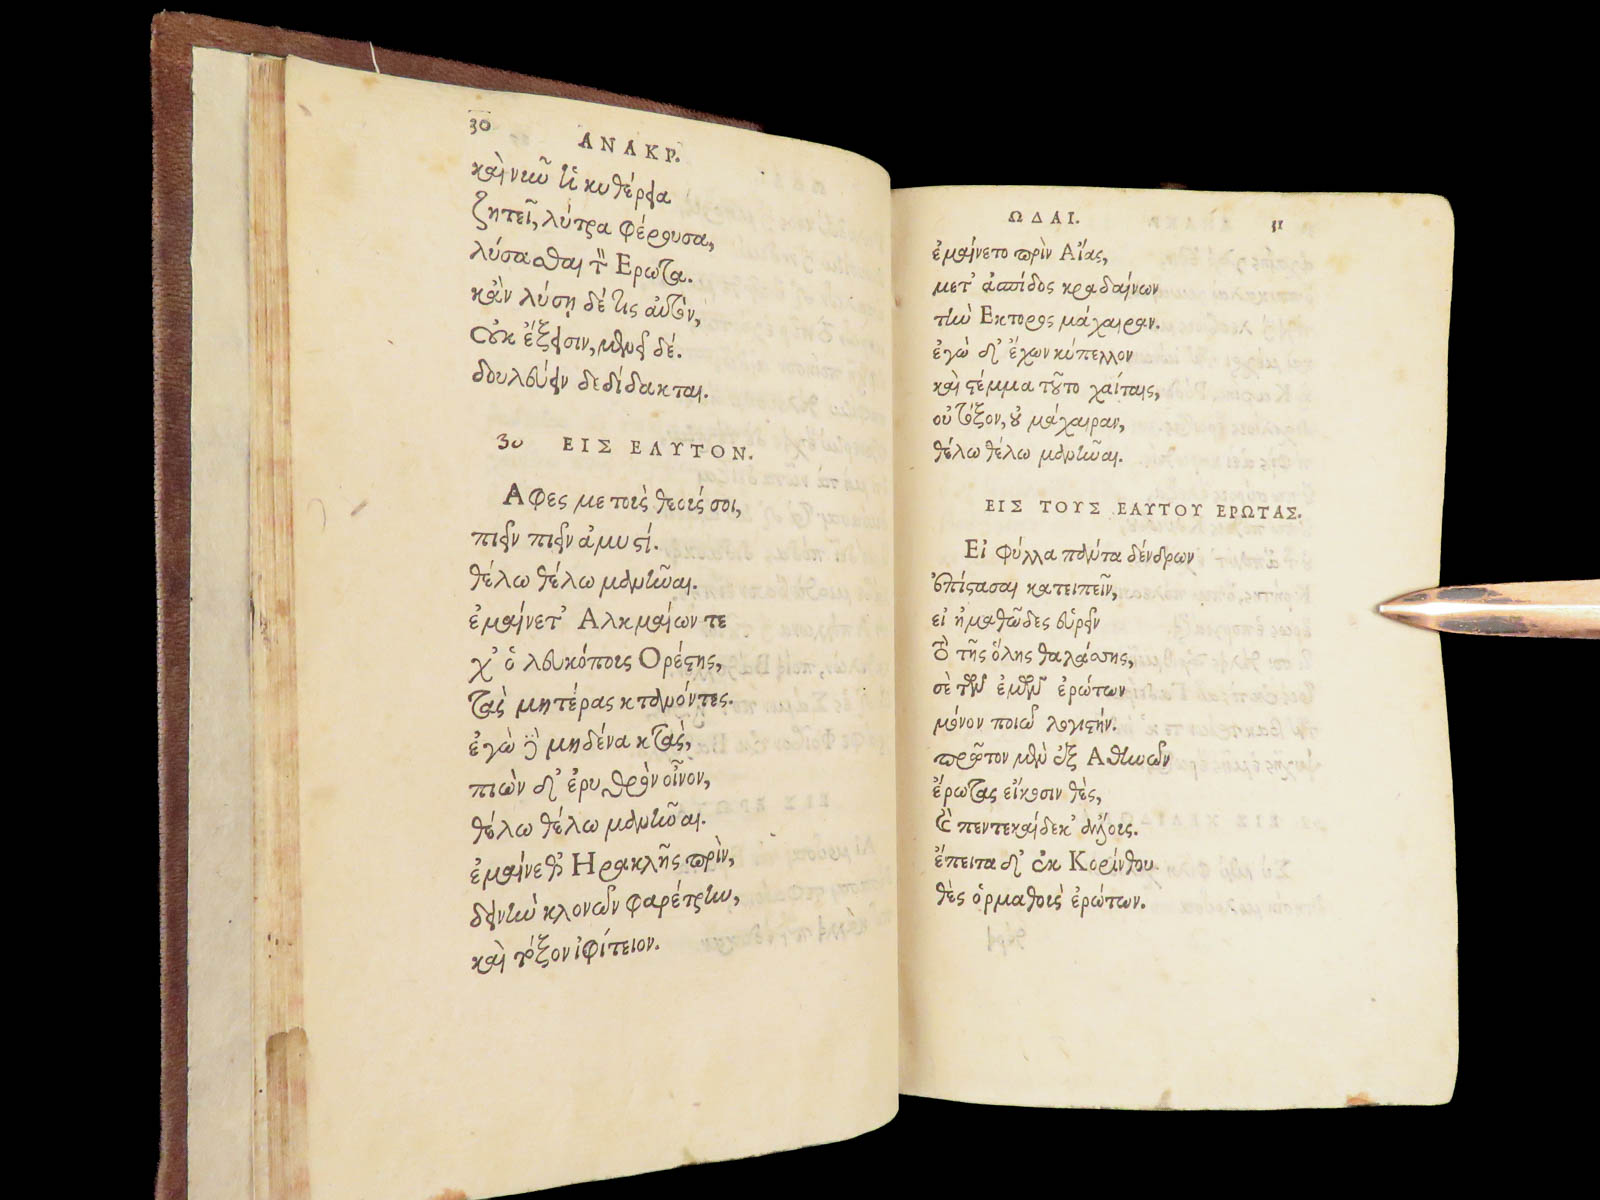 30
ΑΝΑΚΡ.
καὶ νῦν ἡ κυθέρεια
ζητεῖ, λύτρα φέρουσα,
λύσασθαι τὸν Ερωτα.
κἂν λύσῃ δέ τις αὐτὸν,
Οὐκ ἔξεισιν, μενεῖ δέ.
δουλεύειν δεδίδακται.
30 ΕΙΣ ΕΑΥΤΟΝ.
Αφες με τοὺς θεούς σοι,
πιεῖν πιεῖν ἀμυστί.
θέλω θέλω μανῆναι.
ἐμαίνετ' Αλκμαίων τε
χ' ὁ λευκόπους Ορέστης,
τὰς μητέρας κτανόντες.
ἐγὼ δὲ μηδένα κτὰς,
πιὼν δ' ἐρυθρὸν οἶνον,
θέλω θέλω μανῆναι.
ἐμαίνεθ' Ηρακλῆς πρὶν,
δεινὴν κλονῶν φαρέτρην,
καὶ τόξον ἰφίτειον.
ΩΔΑΙ.
31
ἐμαίνετο πρὶν Αἴας,
μετ' ἀσπίδος κραδαίνων
τὴν Εκτορος μάχαιραν.
ἐγὼ δ' ἔχων κύπελλον
καὶ στέμμα τοῦτο χαίταις,
οὐ τόξον, οὐ μάχαιραν,
θέλω θέλω μανῆναι.
ΕΙΣ ΤΟΥΣ ΕΑΥΤΟΥ ΕΡΩΤΑΣ.
Εἰ φύλλα πάντα δένδρων
ἐπίστασαι κατειπεῖν,
εἰ ἡμαθῶδες εὑρεῖν
τὸ τῆς ὅλης θαλάσσης,
σὲ τῶν ἐμῶν ἐρώτων
μόνον ποιῶ λογιστήν.
πρῶτον μὲν ἐξ Αθηνῶν
ἔρωτας εἴκοσιν θὲς,
καὶ πεντεκαίδεκ' ἄλλους.
ἔπειτα δ' ἐκ Κορίνθου
θὲς ὁρμαθοὺς ἐρώτων.